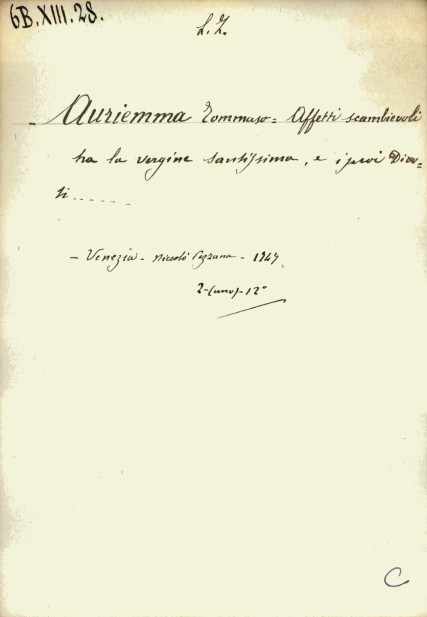 6B.XIII.28.
L. Z.
- Auriemma Tommaso = Affetti scambievoli
tra la vergine santissima, e i suoi Divo-
ti......
- Venezia - Niccolò Pezzana - 1747
2-(uno)-12°
C